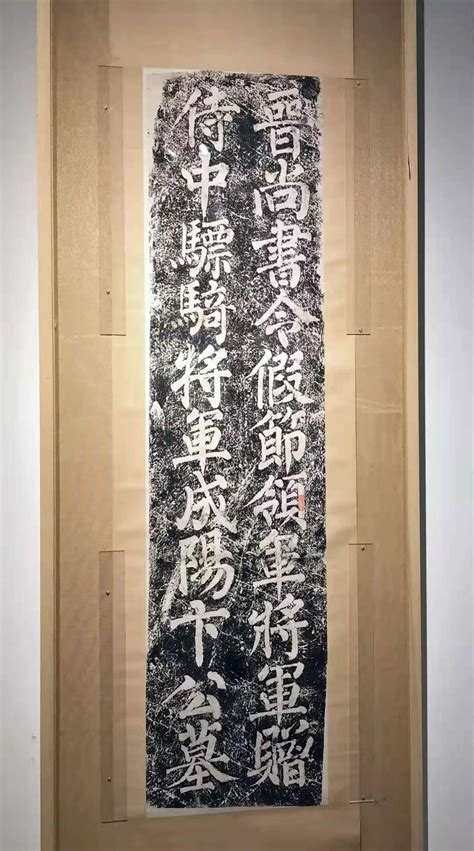 晉尚書令假節領軍將軍贈
侍中驃騎將軍成陽卞公墓